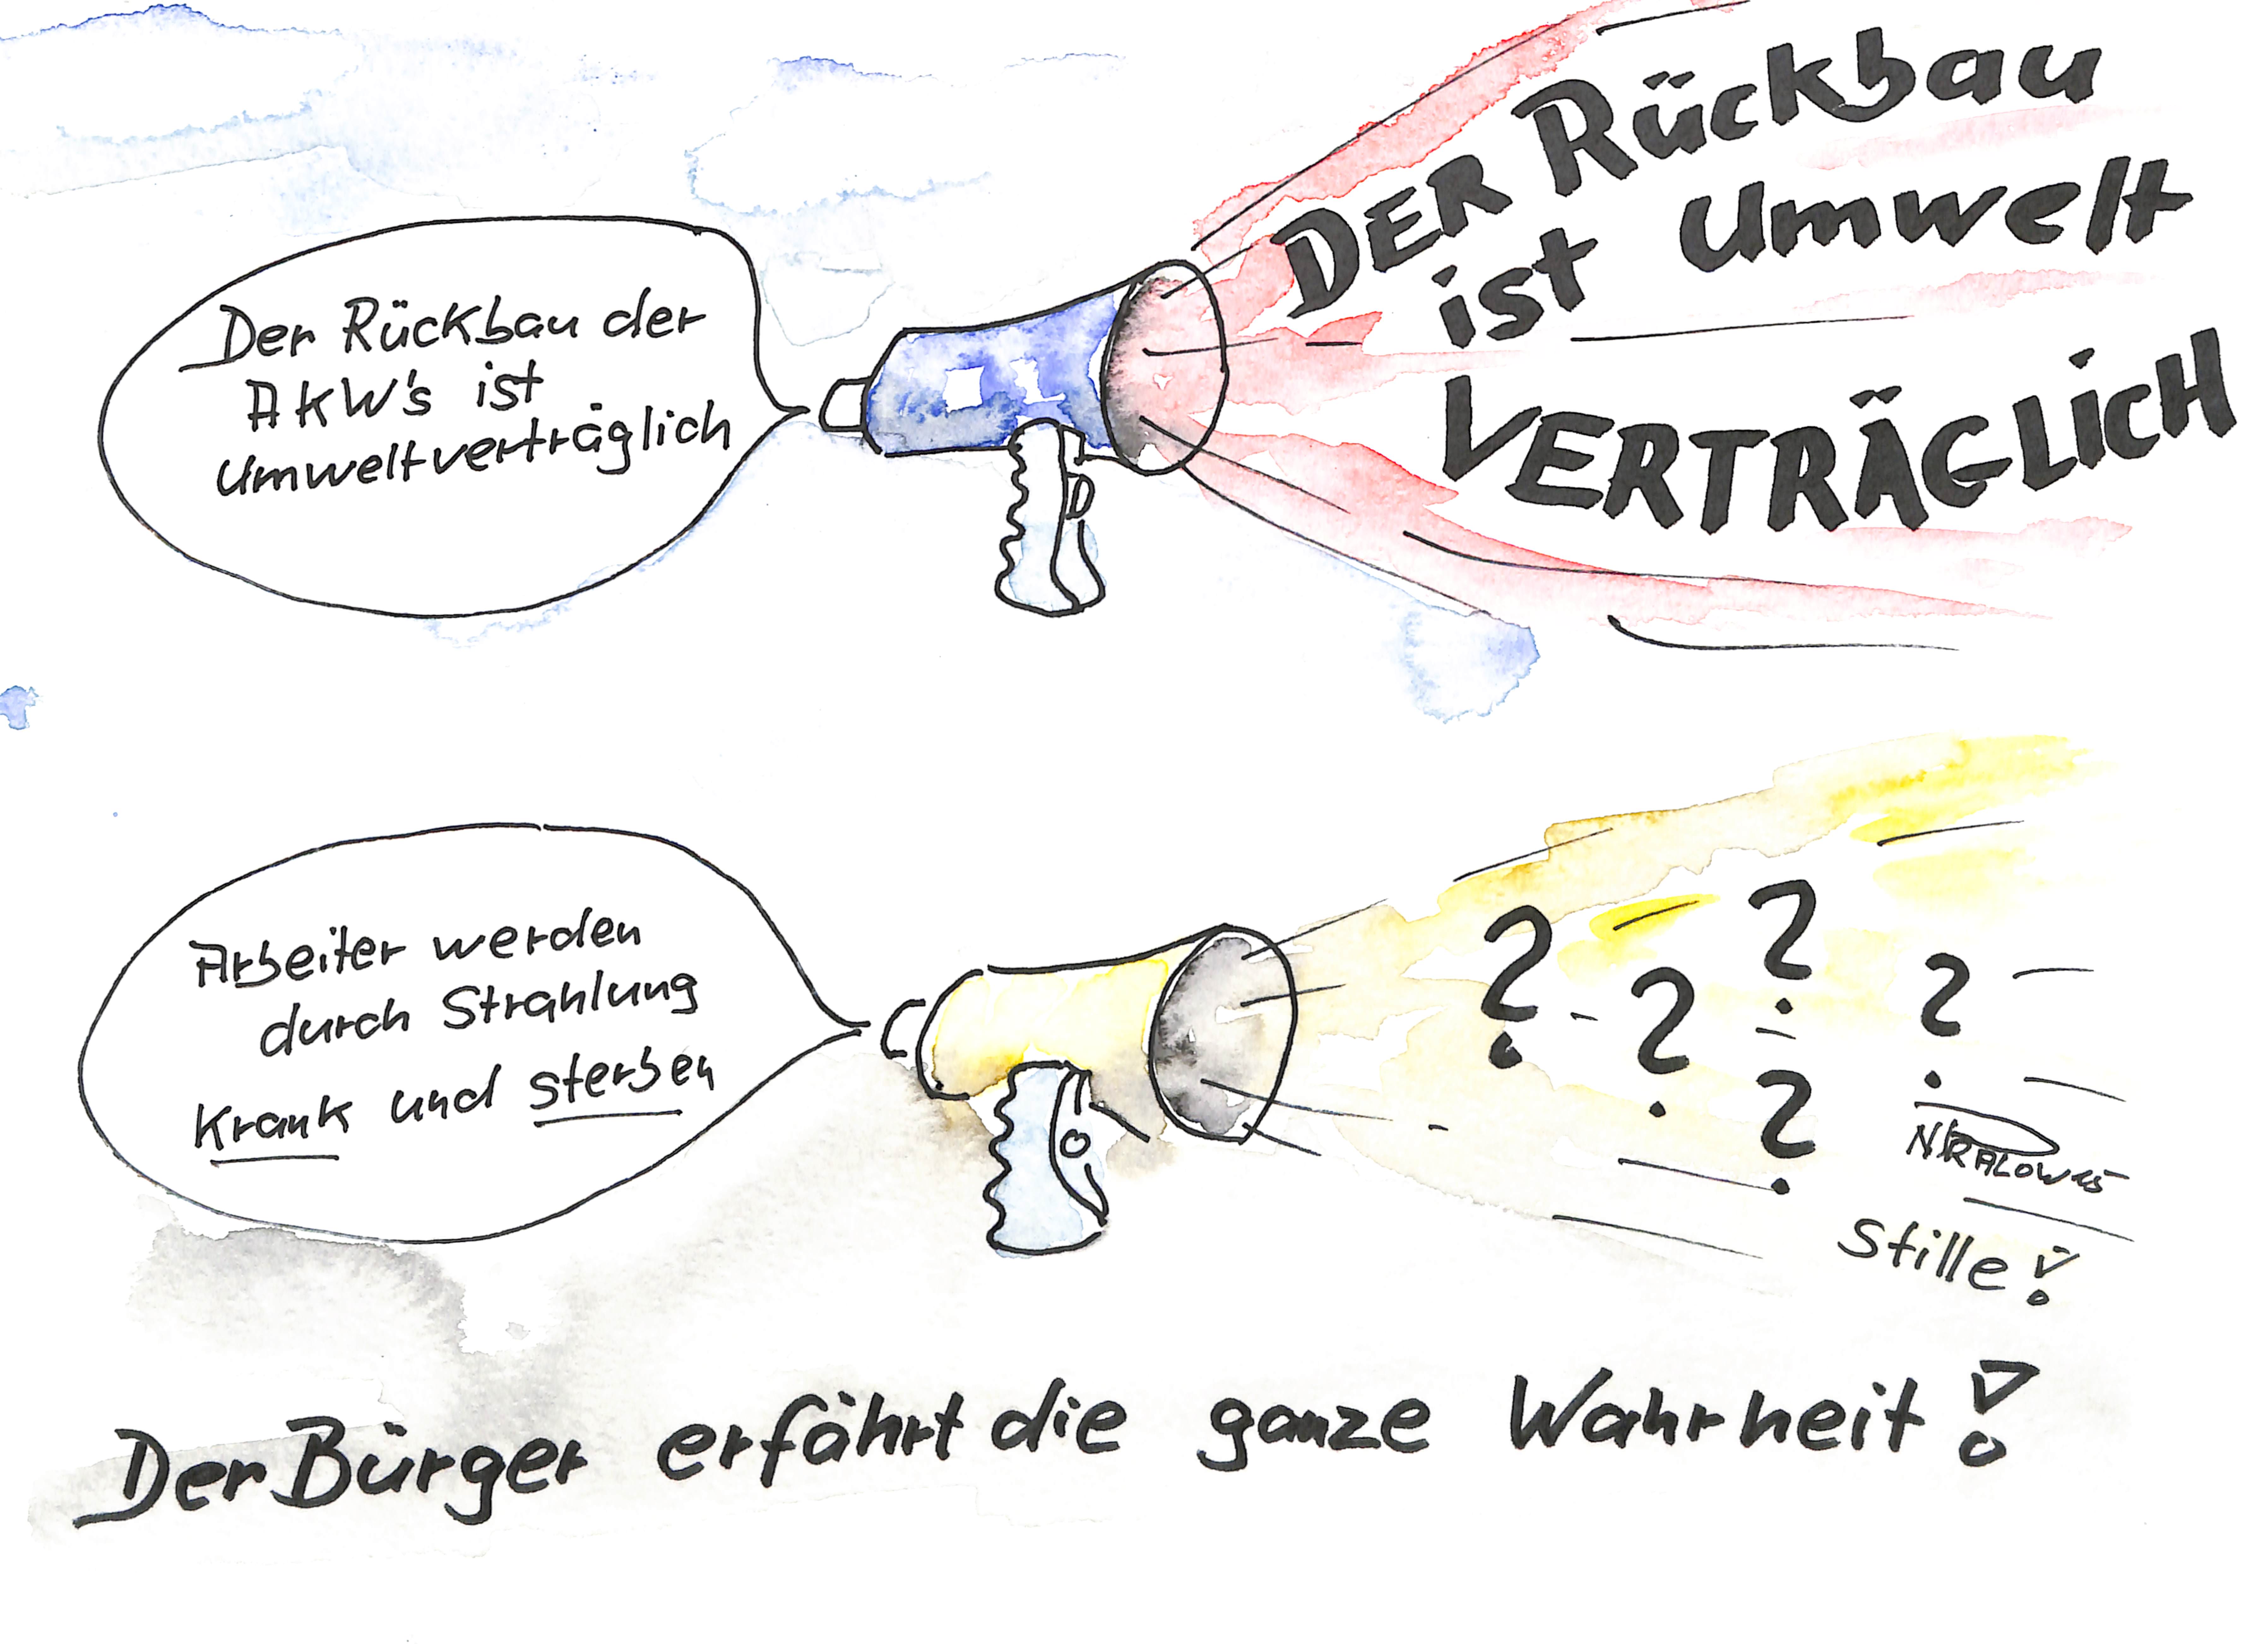 Der Rückbau der
AKW's ist
Umweltverträglich
DER Rückbau
ist Umwelt
VERTRÄGLICH
D
Arbeiter werden
durch Strahlung
Krank und sterben
O
? - ? ? ?
?
Stille!
Der Bürger erfährt die ganze Wahrheit!